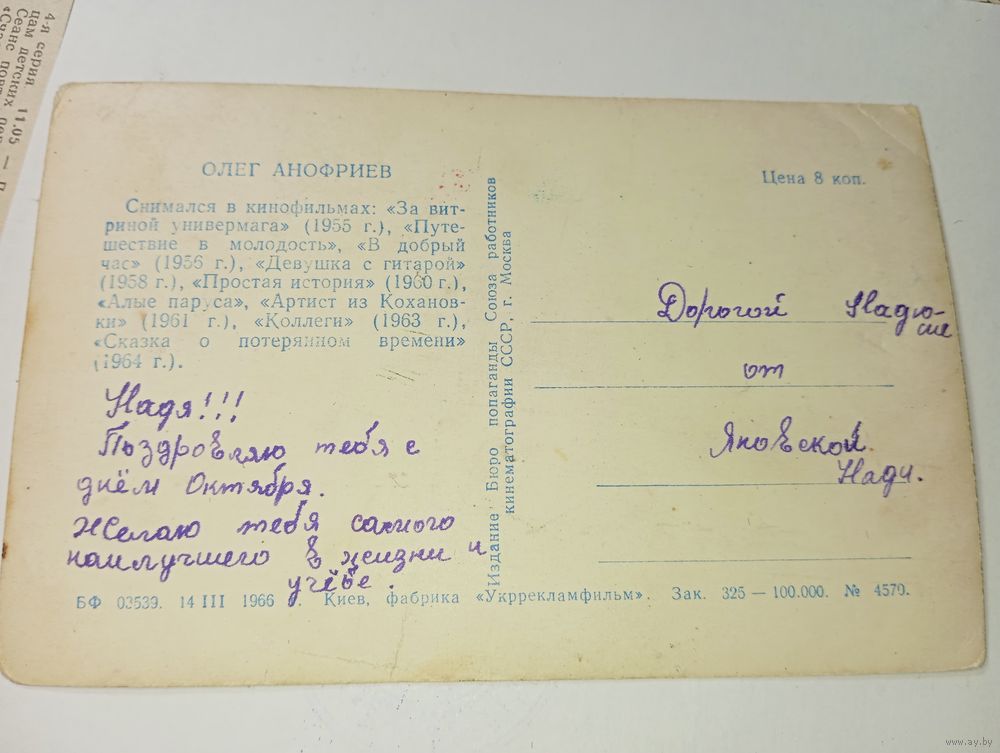 4-я серия. 11.05
цам детских
Сеанс повт
ОЛЕГ АНОФРИЕВ
Снимался в кинофильмах: «За вит-
риной универмага» (1955 г.), «Путе-
шествие в молодость», «В добрый
час» (1956 г.), «Девушка с гитарой»
(1958 г.), «Простая история» (1960 г.),
«Алые паруса», «Артист из Кохановки»
ки» (1961 г.), «Коллеги» (1963 г.),
«Сказка о потерянном времени»
(1964 г.).
Надя!!!
Поздровляю тебя с
днём Октября.
Желаю тебя самого
наилучшего в жизни и
учёбе.
Издание Бюро попаганды Союза работников
кинематографии СССР, г. Москва
Цена 8 коп.
Дорогой Надю-
сие
от
Яновской
Нади.
БФ 03539. 14 III 1966 г. Киев, фабрика «Укррекламфильм». Зак. 325 — 100.000. № 4570.
www.ay.by